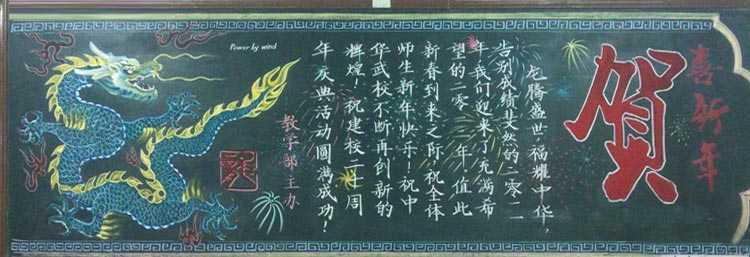 喜新年
賀
龙腾盛世,福耀中华,
告别成绩斐然的二零一一
年我们迎来了充满希
望的二零一二年,值此
新春到来之际祝全体
师生新年快乐!祝中
华武校不断再创新的
辉煌!祝建校二十周
年庆典活动圆满成功!
教学部主办
Power by wind